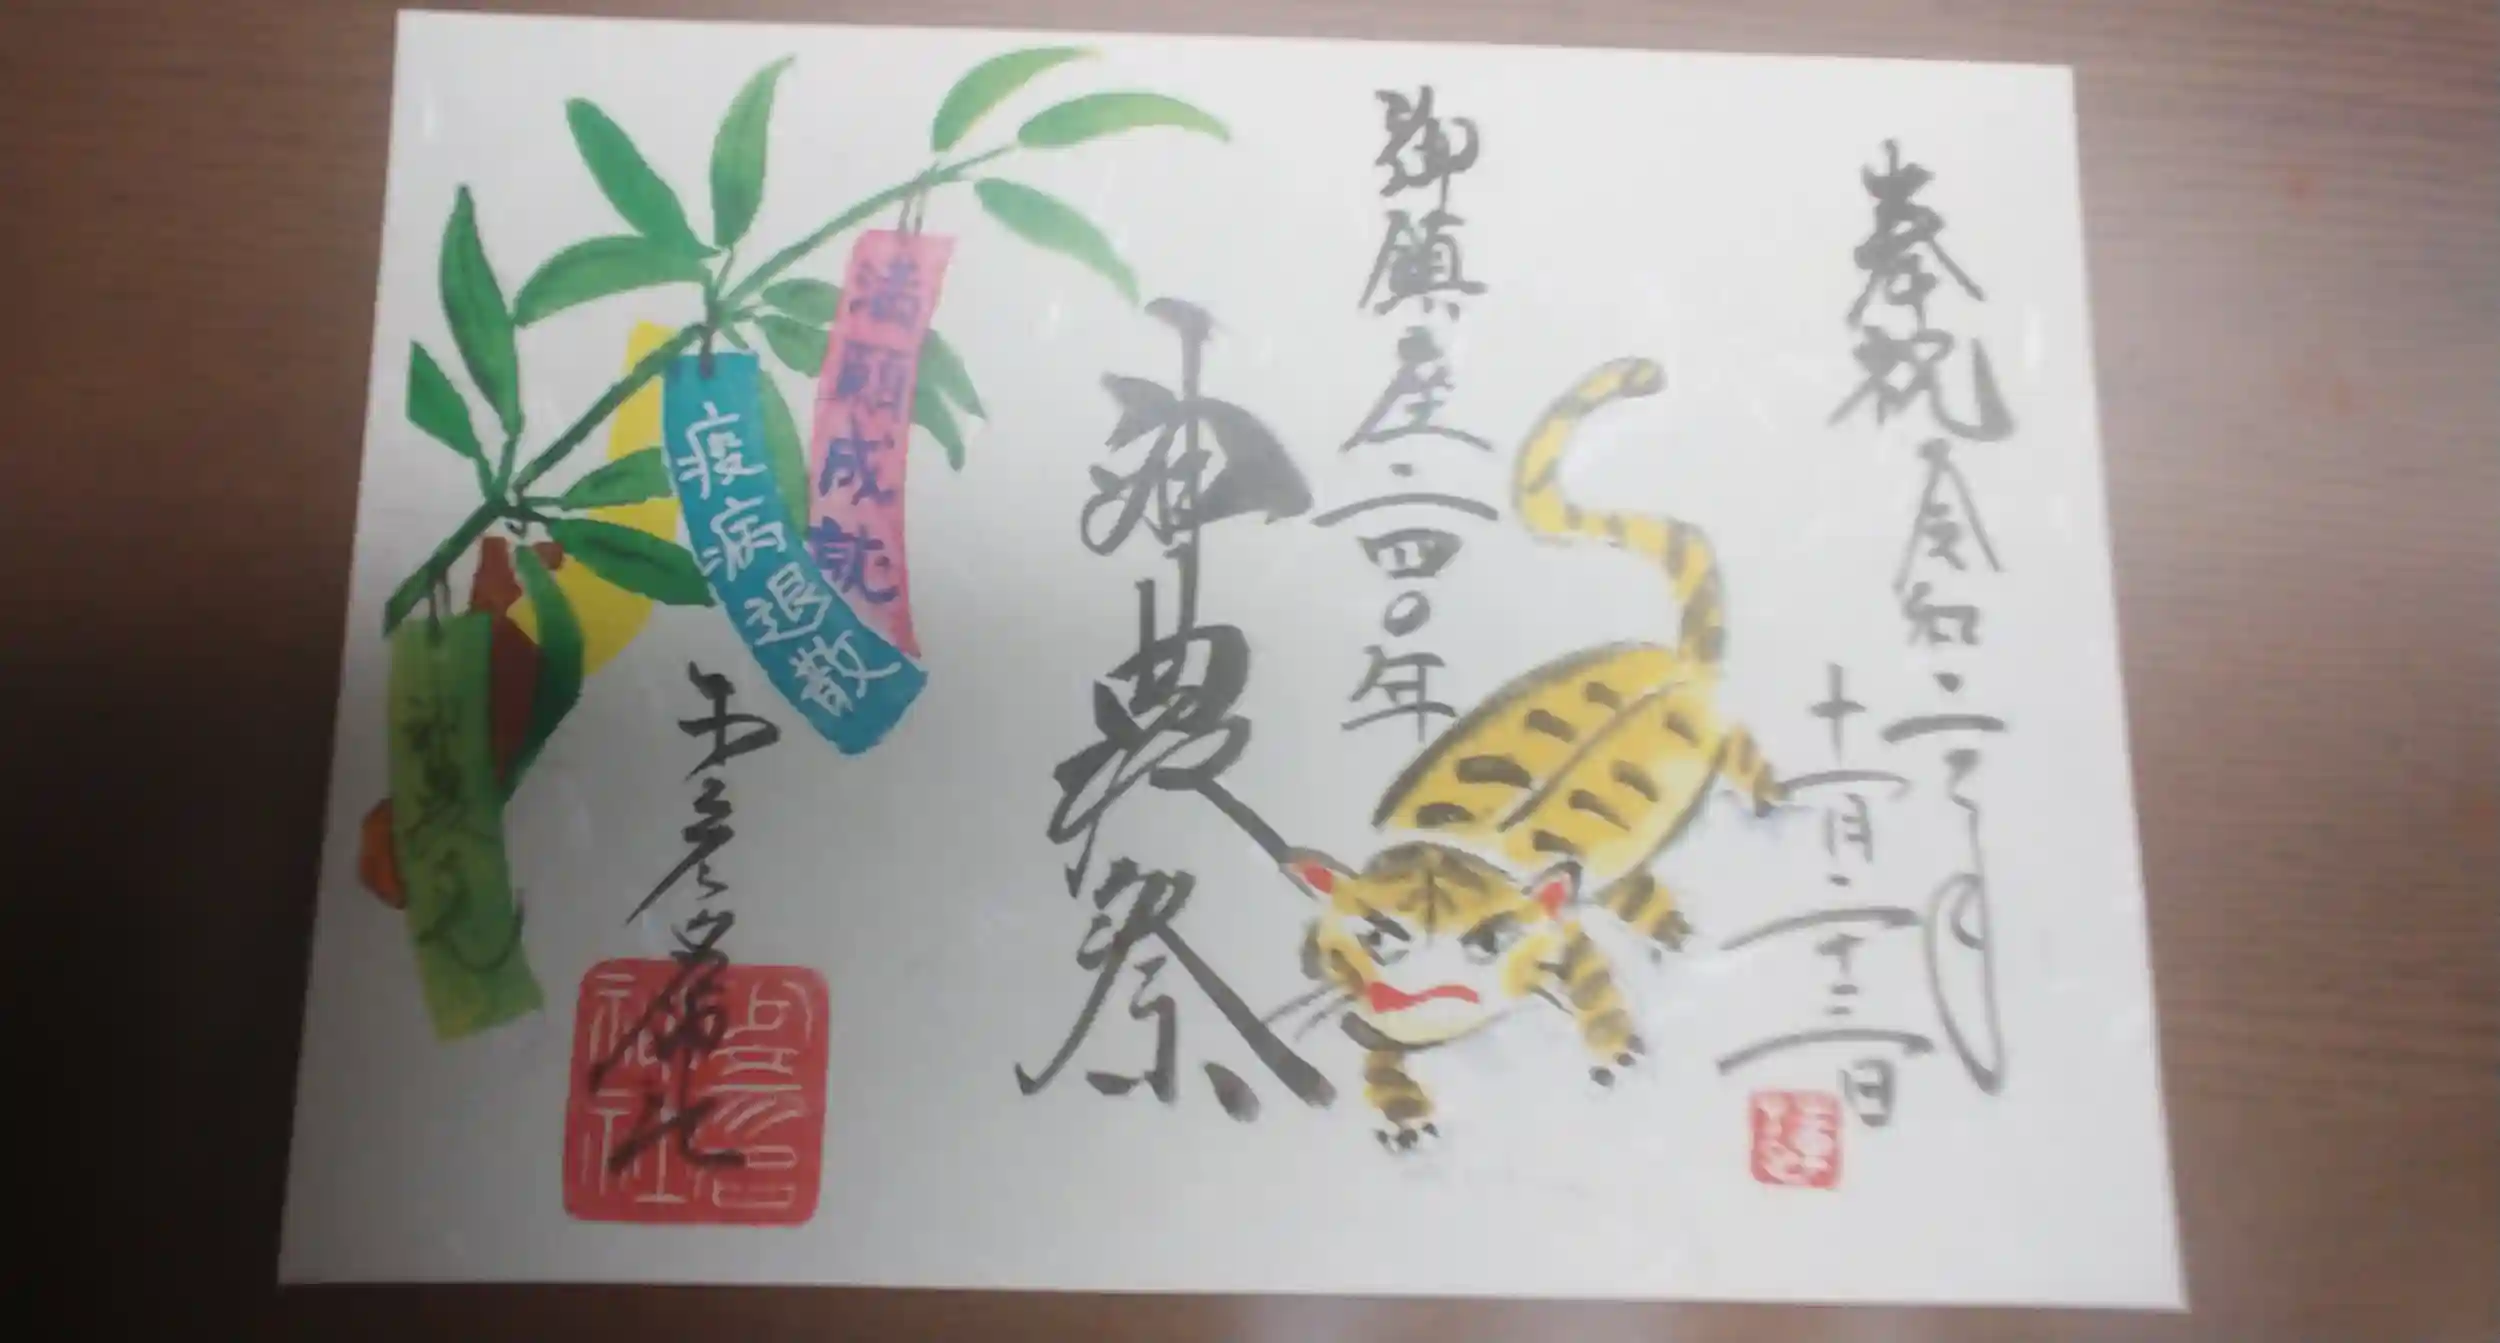 奉祝
令和二年
十一月二十三日
御鎮座二四〇年
神農祭
満願成就
疫病退散
神農さん
神社